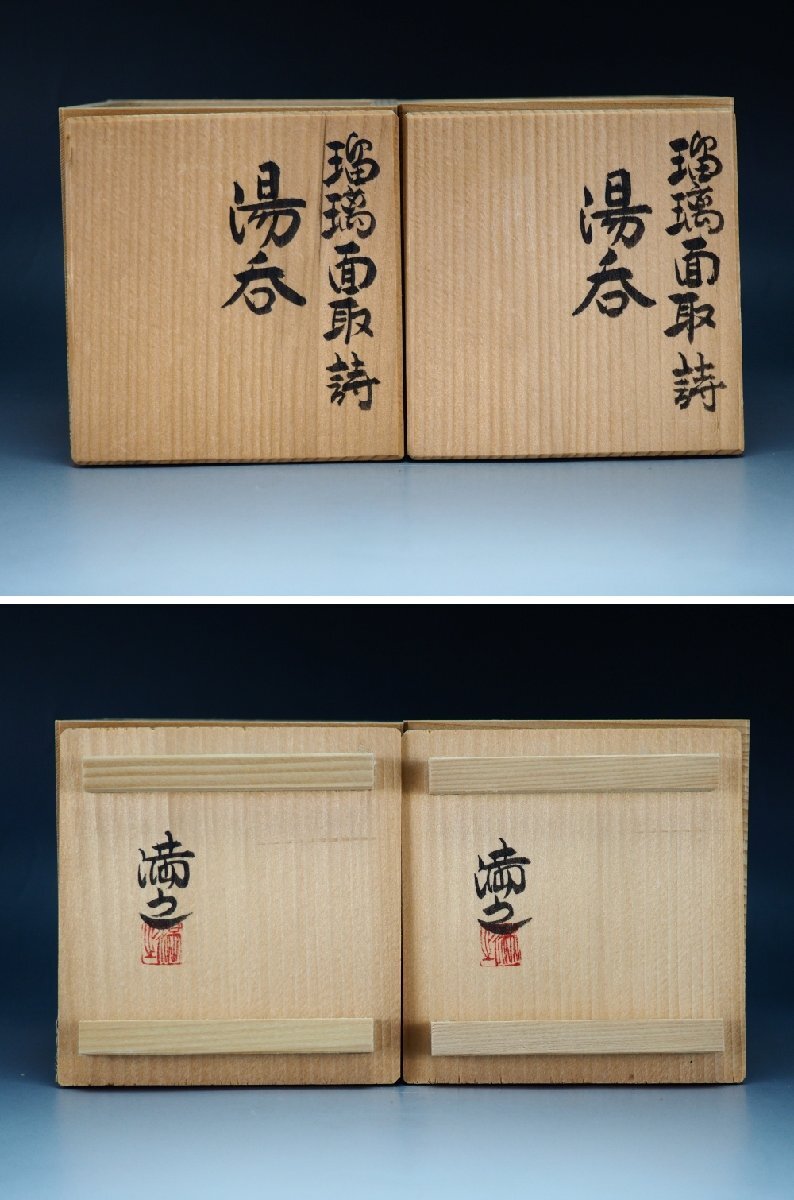 瑠璃面取詩
湯呑
瑠璃面取詩
湯呑
満之
満之